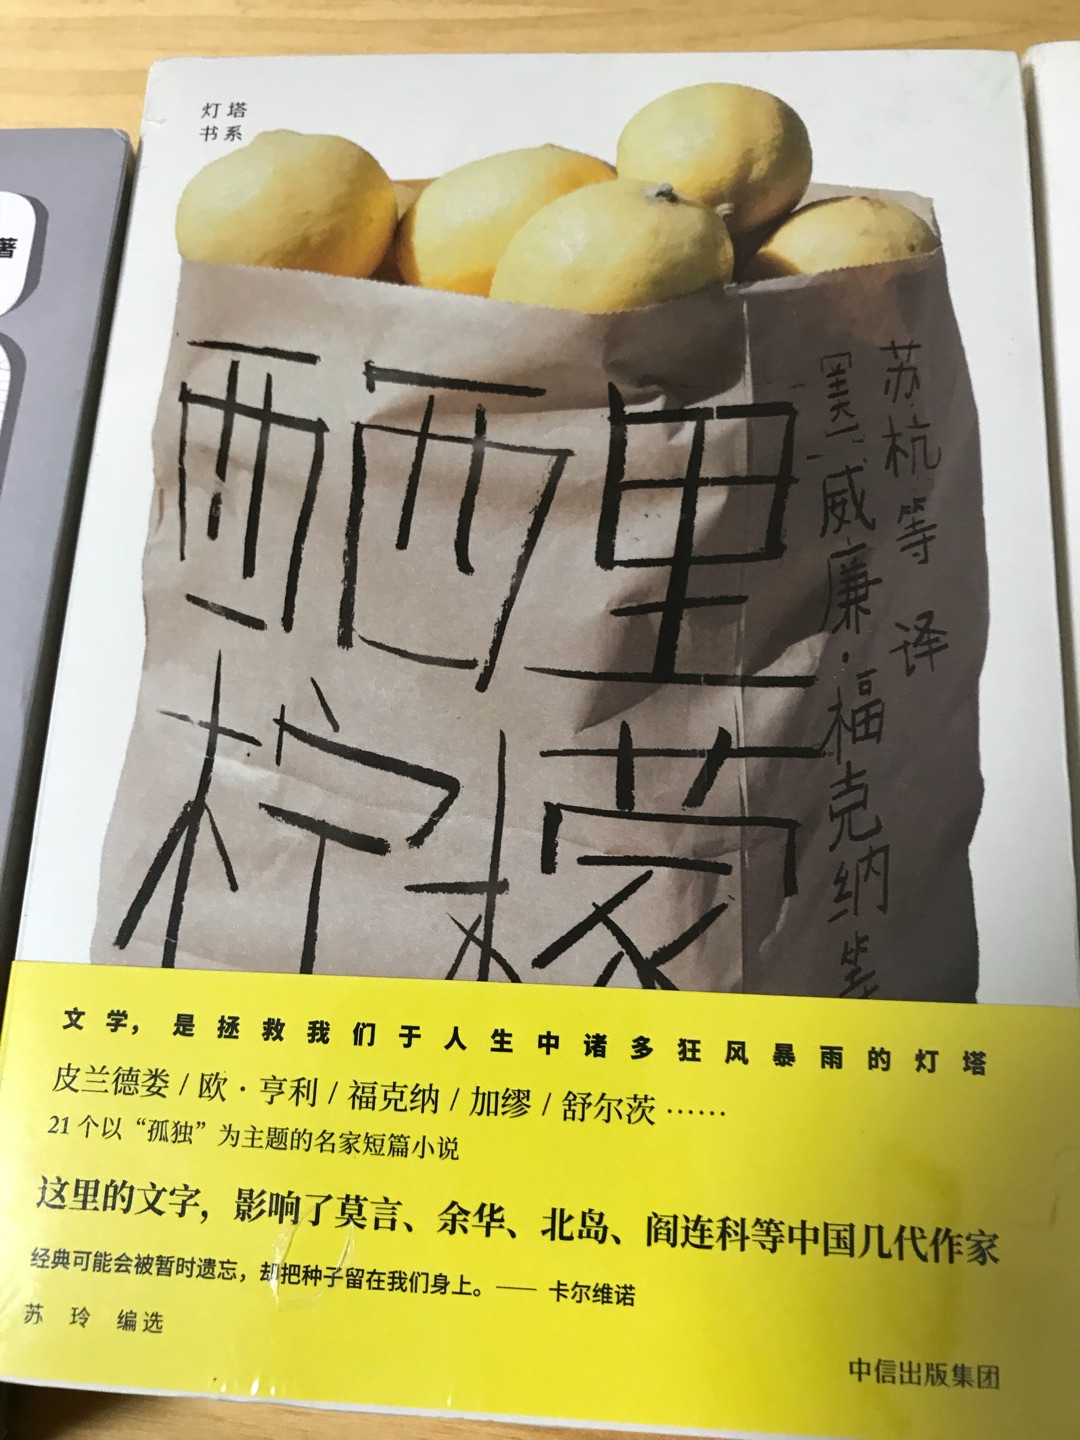 著
灯塔
书系
西西里
柠檬
[美]威廉·福克纳等
苏杭等 译
文学，是拯救我们于人生中诸多狂风暴雨的灯塔
皮兰德娄 / 欧·亨利 / 福克纳 / 加缪 / 舒尔茨 ……
21个以“孤独”为主题的名家短篇小说
这里的文字，影响了莫言、余华、北岛、阎连科等中国几代作家
经典可能会被暂时遗忘，却把种子留在我们身上。—— 卡尔维诺
苏 玲 编选
中信出版集团